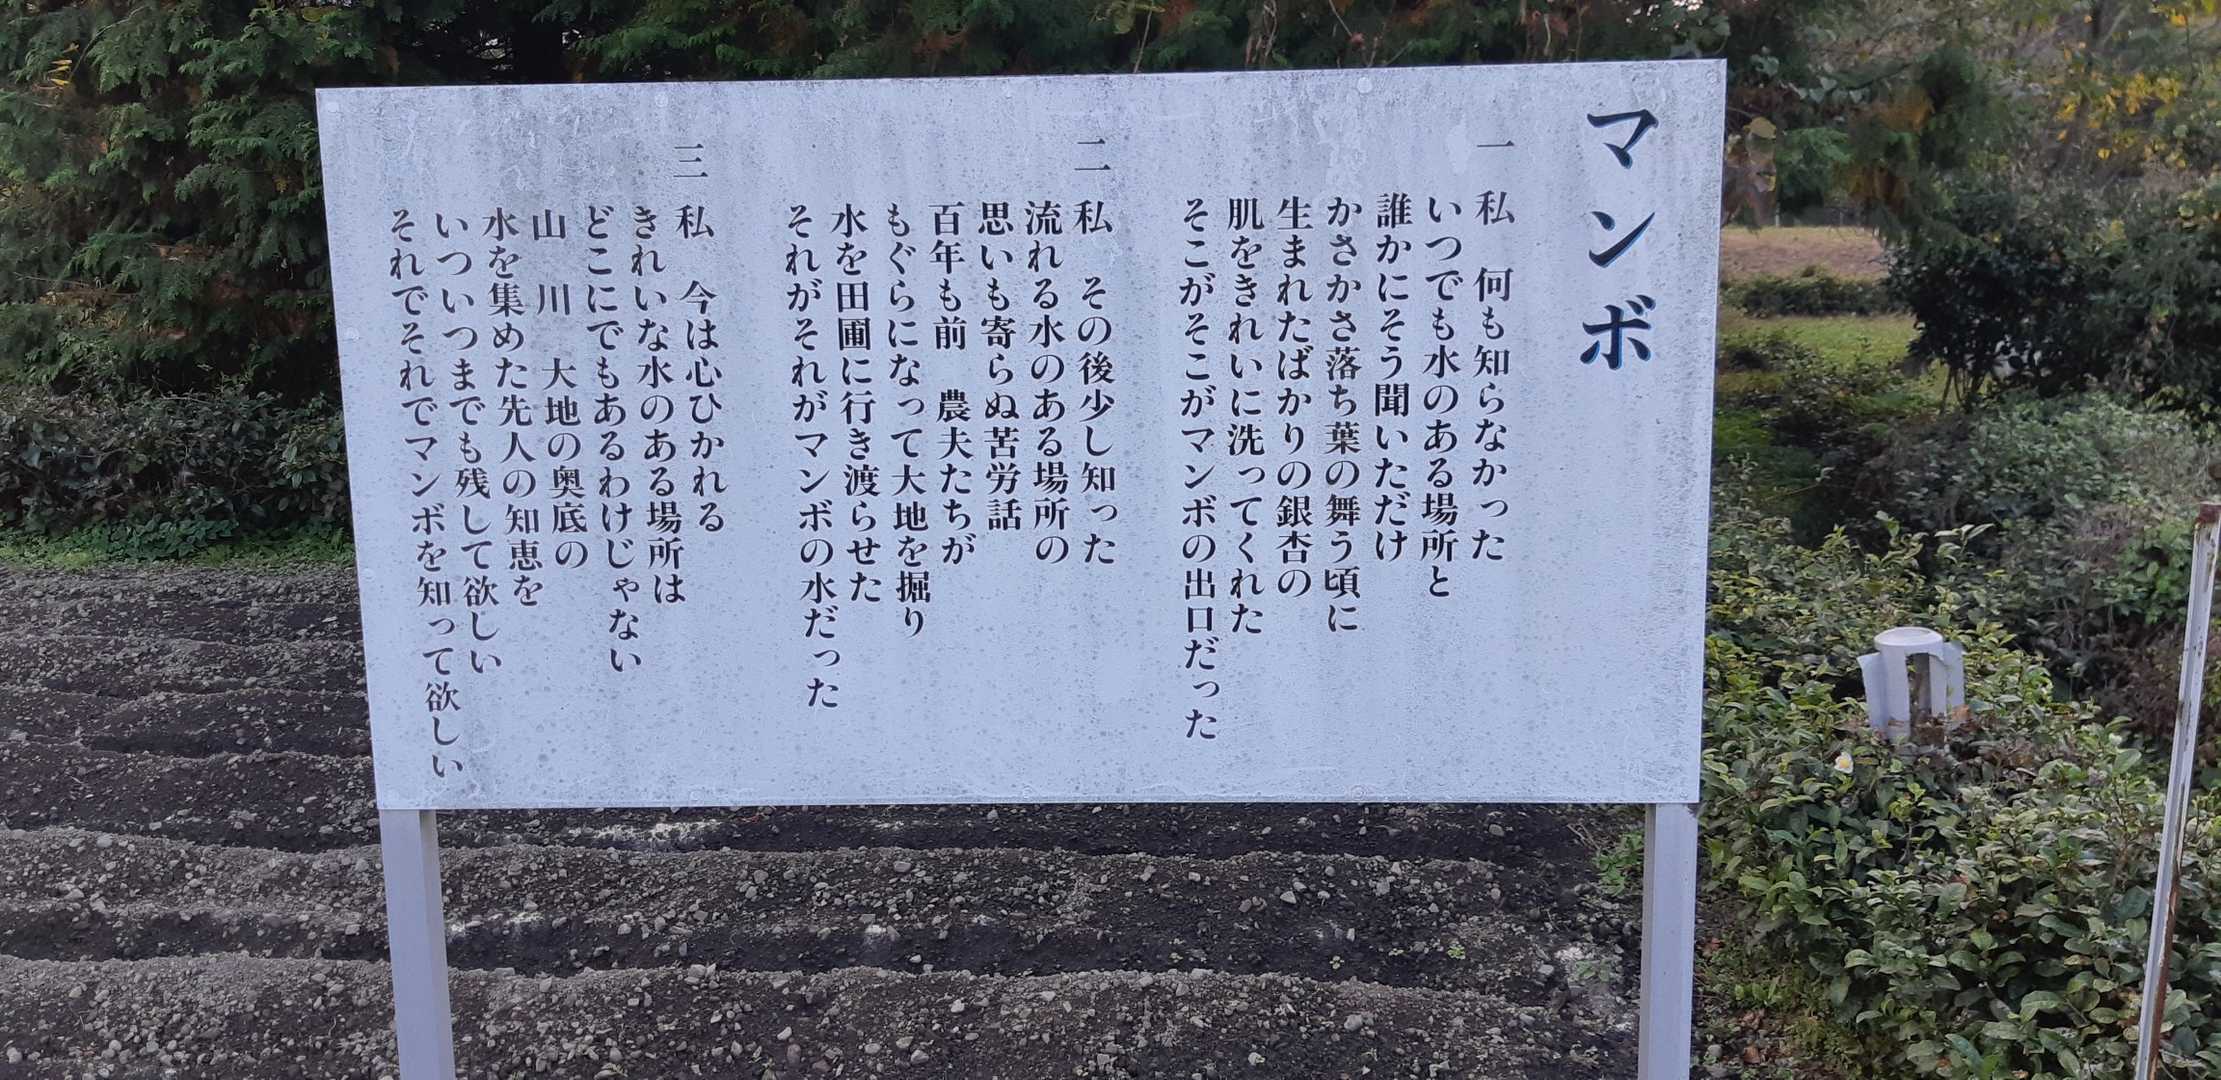 マンボ
一 私 何も知らなかった
いつでも水のある場所と
誰かにそう聞いただけ
かさかさ落ち葉の舞う頃に
生まれたばかりの銀杏の
肌をきれいに洗ってくれた
そこがそこがマンボの出口だった
二 私 その後少し知った
流れる水のある場所の
思いも寄らぬ苦労話
百年も前 農夫たちが
もぐらになって大地を掘り
水を田圃に行き渡らせた
それがそれがマンボの水だった
三 私 今は心ひかれる
きれいな水のある場所は
どこにでもあるわけじゃない
山 川 大地の奥底の
水を集めた先人の知恵を
いついつまでも残して欲しい
それでそれでマンボを知って欲しい